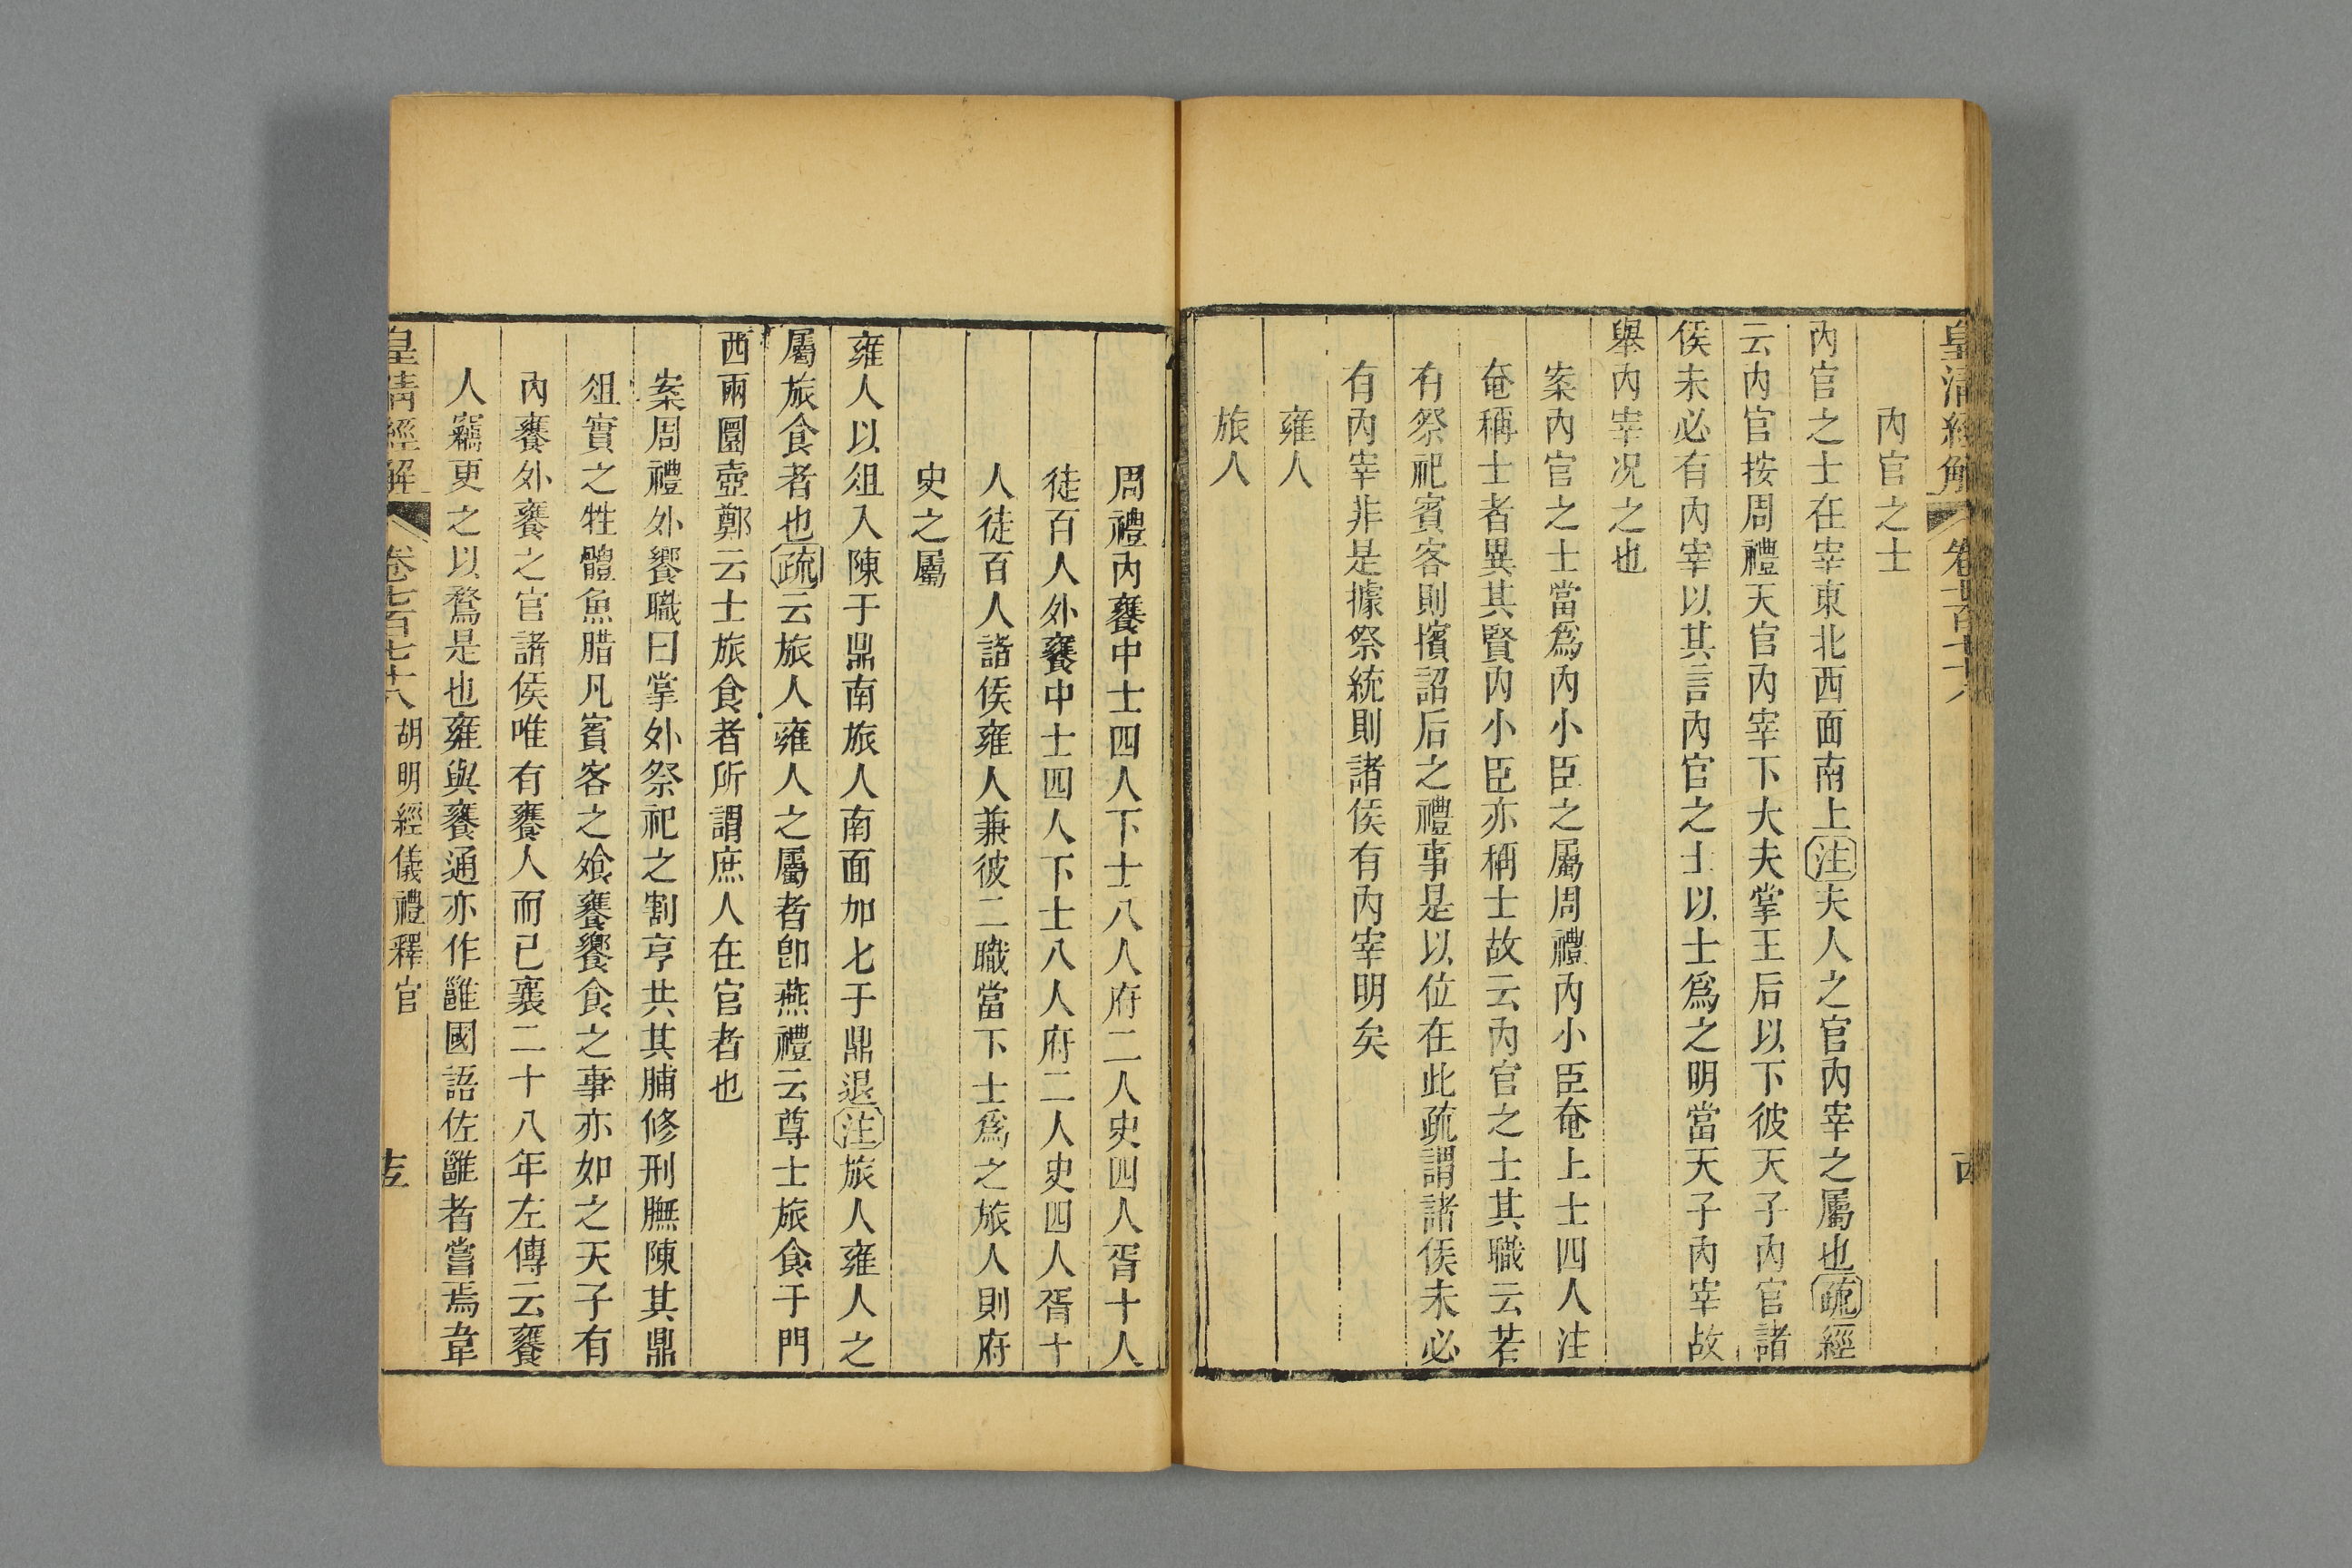 皇清經解 卷七百七十八
內官之士
內官之士在宰東北西面南上注夫人之官內宰之屬也疏經
云內官按周禮天官內宰下大夫掌王后以下彼天子內官諸
侯未必有內宰以其言內官之士以士爲之明當天子內宰故
舉內宰况之也
案內官之士當爲內小臣之屬周禮內小臣奄上士四人注
奄稱士者異其賢內小臣亦稱士故云內官之士其職云若
有祭祀賓客則擯詔后之禮事是以位在此疏謂諸侯未必
有內宰非是據祭統則諸侯有內宰明矣
雍人
旅人
周禮內饔中士四人下士八人府二人史四人胥十人
徒百人外饔中士四人下士八人府二人史四人胥十
人徒百人諸侯雍人兼彼二職當下士爲之旅人則府
史之屬
雍人以俎入陳于鼎南旅人南面加匕于鼎退注旅人雍人之
屬旅食者也疏云旅人雍人之屬者卽燕禮云尊士旅食于門
西兩圜壺鄭云士旅食者所謂庶人在官者也
案周禮外饔職曰掌外祭祀之割亨共其脯修刑膴陳其鼎
俎實之牲體魚腊凡賓客之飧饔饗食之事亦如之天子有
內饔外饔之官諸侯唯有饔人而已襄二十八年左傳云饔
人竊更之以鶩是也雍與饔通亦作雝國語佐雝者嘗焉韋
皇清經解 卷七百七十八 胡明經儀禮釋官